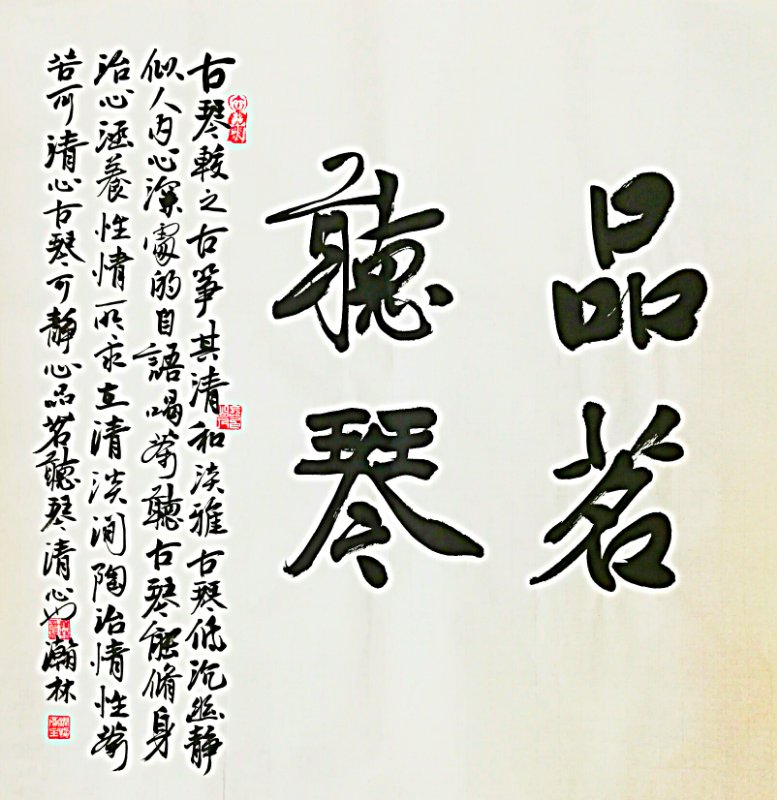 品茗
聽琴
古琴較之古箏其清和淡雅古琴低沉幽靜
似人内心深處的自語喝茶聽古琴能脩身
治心涵養性情所求在清淡间陶治情性茶
苦可清心古琴可靜心品茗聽琴清心也
瀚林